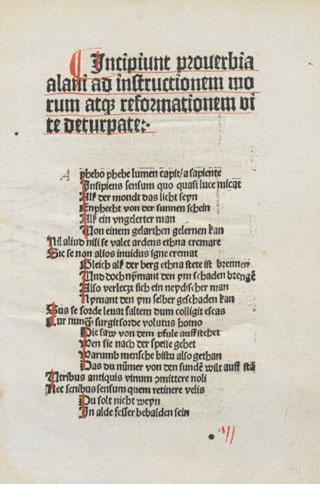 Incipiunt prouerbia
alani ad instructionem mo
rum atqꝫ reformationem vi
te deturpate:·
A phebo phebe lumen capit/a sapiente
Insipiens sensum quo quasi luce micat
Alß der mondt das licht seyn
Enphecht von der sunnen schein
Alß ein vngelerter man
Von einem gelarthen gelernen kan
Nil aliud nisi se valet ardens ethna cremare
Sic se non alios inuidus igne cremat
Gleich alß der berg ethna stete ist brennen
Und doch nymant den ym schaden brengē
Also verleczt sich ein neydischer man
Nymant den ym selber geschaden kan
Sus se sorde leuat saltem dum colligit escas
Cur nunqꝫ surgit sorde volutus homo
Die saw von dem pfule aufstehet
Wen sie nach der speise gehet
Warumb mensche bistu also gethan
Das du nūmer von den sundē wilt auff stā
Utribus antiquis vinum ꝯmittere noli
Nec senibus sensum quem retinere velis
Du solt nicht weyn
In alde fesser behalden sein